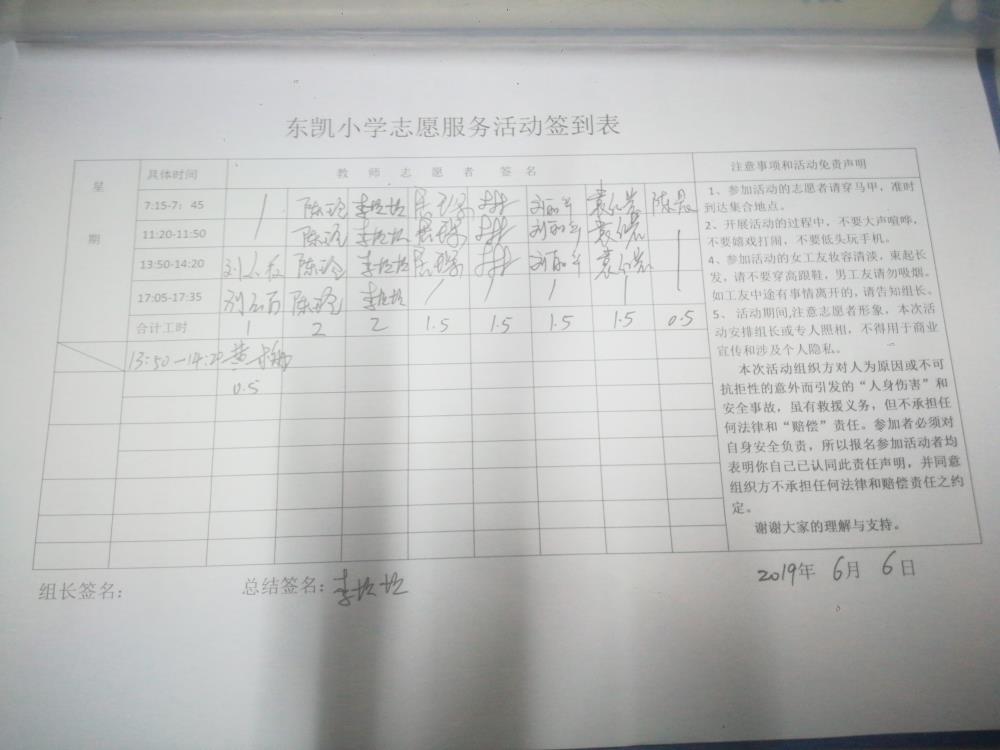 东凯小学志愿服务活动签到表
星期 具体时间 教师志愿者签名 注意事项和活动免责声明
7:15-7:45 / 陈 李 刘 袁 陈
11:20-11:50 陈 李 刘 袁
13:50-14:20 刘 陈 李 刘 袁 /
17:05-17:35 刘 陈 李 / / / /
合计工时 1 2 2 1.5 1.5 1.5 1.5 0.5
13:50-14:20 黄
0.5
1、参加活动的志愿者请穿马甲，准时
到达集合地点。
2、开展活动的过程中，不要大声喧哗，
不要嬉戏打闹，不要低头玩手机。
4、参加活动的女工友妆容清淡，束起长
发，请不要穿高跟鞋，男工友请勿吸烟。
如工友中途有事情离开的，请告知组长。
5、 活动期间,注意志愿者形象，本次活
动安排组长或专人照相，不得用于商业
宣传和涉及个人隐私。
本次活动组织方对人为原因或不可
抗拒性的意外而引发的“人身伤害”和
安全事故，虽有救援义务，但不承担任
何法律和“赔偿”责任。参加者必须对
自身安全负责，所以报名参加活动者均
表明你自己已认同此责任声明，并同意
组织方不承担任何法律和赔偿责任之约
定。
谢谢大家的理解与支持。
组长签名： 总结签名：李
2019年 6月 6日